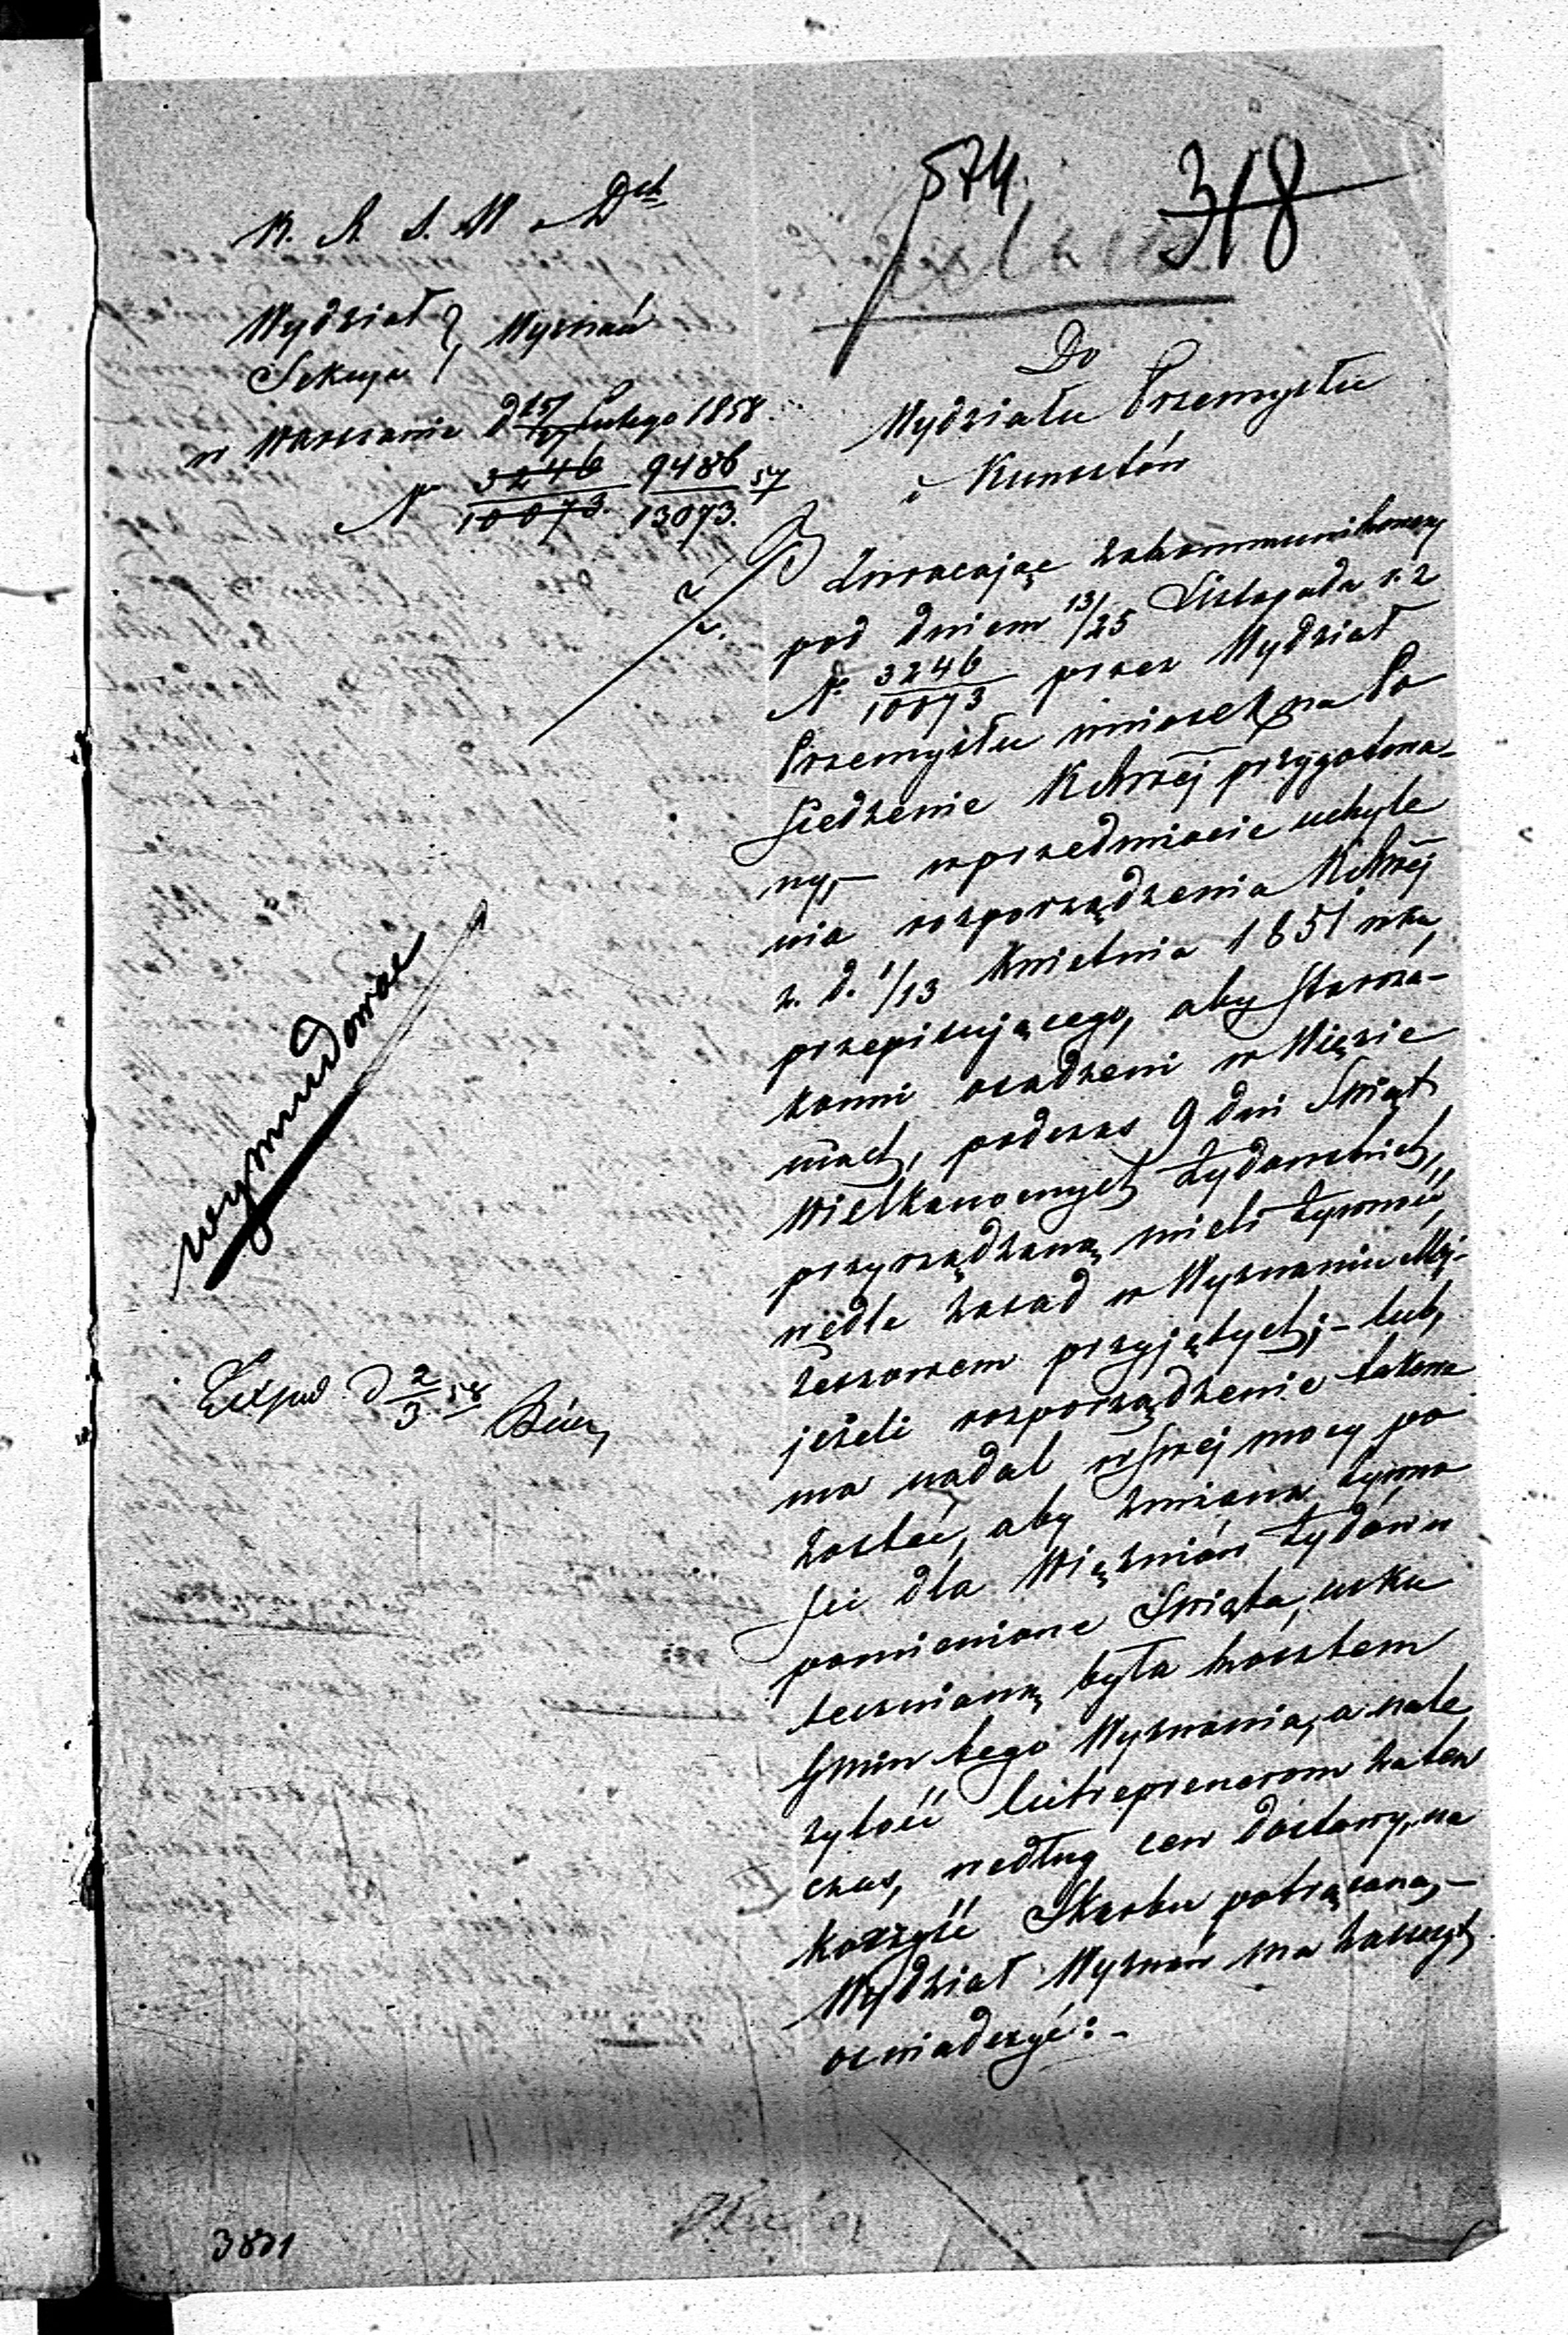 574.
318
K. R. S. W. i D.ch
Wydział } Wyznań
Sekcya
w Warszawie d 15/27 Lutego 1858
N 3246/10073. 9486/13073. 57
Do
Wydziału Przemysłu
i Kunsztów
Zwracając zakommunikowany
pod dniem 13/25 Listopada r. z.
N. 3246/10073 przez Wydział
Przemysłu wniosek na Po
siedzenie KRząj przygotowa-
ny,- w przedmiocie uchyle
nia rozporządzenia KRząj
z. d. 1/13 Kwietnia 1851 roku,
przepisującego, aby Staroza-
konni osadzeni w Więzie
niach, podczas 9 dni Świąt
Wielkanocnych Żydowskich,
przyrządzaną mieli żywność,
wedle zasad w Wyznaniu Moj-
żeszowem przyjętych;- lub,
jeżeli rozporządzenie takowe
ma nadal w swej mocy po
zostać, aby zmiana żywno
ści dla Więźniów Żydów w
pomienione Święta, usku
tecznianą była kosztem
Gmin tego Wyznania, a nale
żytość Entreprenerom za ten
czas, według cen dostawy, na
korzyść Skarbu potrącana,-
Wydział Wyznań ma zaszczyt
oświadczyć:-
wymundować
Exped d 2/3 58
3871